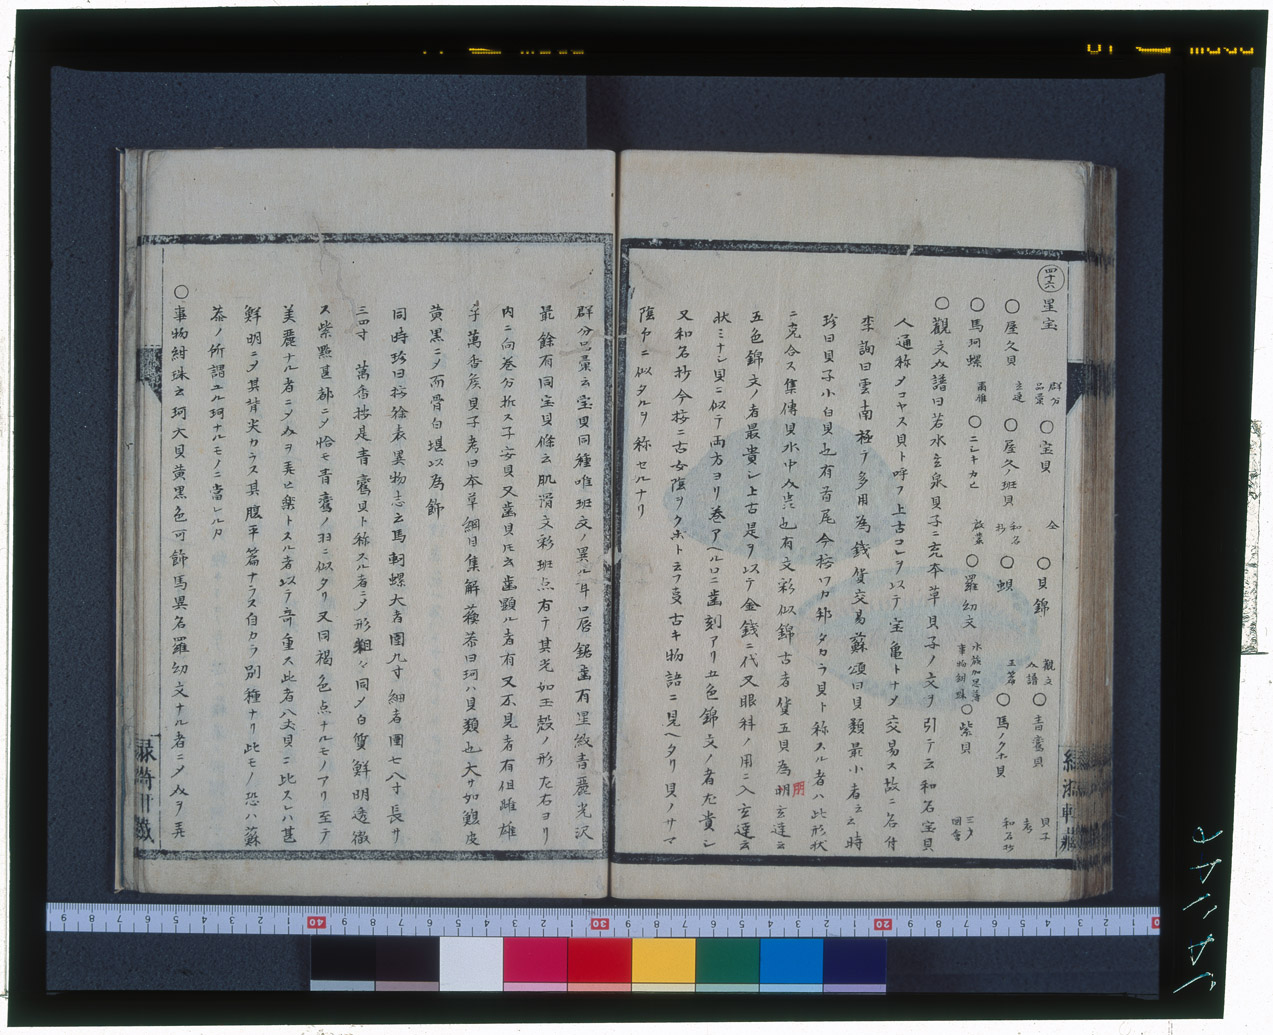 四十六 星宝 群分品彙 〇宝貝 仝 〇貝錦 觀文介譜 〇青鸞貝 貝子考
〇屋久貝 玄達 〇屋久ノ班貝 和名抄 〇蜆 玉篇 〇馬ノクホ貝 和名抄
〇馬珂螺 爾雅 〇ニシキカヒ 啟蒙 〇羅幼文 水族加恩簿 事物紺珠 〇紫貝 三才圖會
〇觀文介譜曰若水主泉貝子ニ充本草貝子ノ文ヲ引テ云和名宝貝
人通称タコヤス貝ト呼フ上古コレヲ以テ宝亀トナメ交易ス故ニ名付
李詢曰雲南極テ多用為銭貨交易蘇頌曰貝類最小者之云時
珍曰貝子小白貝也有首尾今按ワカ邦タカラ貝ト称スル者ハ此形状
ニ克合ス集傳貝水中介虫也有文彩似錦古者貨五貝為朋玄達云
五色錦文ノ者最貴シ上古是ヲ以テ金銭ニ代又眼科ノ用ニ入玄達云
状ミナシ貝ニ似テ両方ヨリ巻アヘルロニ歯刻アリ五色錦文ノ者尤貴シ
又和名抄今按ニ古女陰ヲクボト云フ叓古キ物語ニ見ヘタリ貝ノサマ
陰戸ニ似タルヲ称セルナリ
群分品彙云宝貝同種唯班文ノ異ル耳口唇鋸歯有星紋青麗光沢
最餘有同宝貝條云肌滑文彩班点有テ其光如玉殻ノ形左右ヨリ
内ニ向巻分拆ス子安貝又歯貝氏云歯顕ル者有又不見者有但雌雄
乎萬香矦貝子考曰本草綱目集解蘓恭曰珂ハ貝類也大サ如鰒皮
黄黒ニメ而骨白堪以為飾
同時珍曰按徐表異物志云馬軻螺大者圍九寸細者圍七八寸長サ
三四寸 萬香按是青鸞貝ト称スル者ニメ形粗々同メ白質鮮明透徹
ス紫點甚都ニメ恰モ青鸞ノ羽ニ似タリ又同褐色点ナルモノアリ至テ
美麗ナル者ニメ介ヲ弄ヒ楽トスル者以テ奇重ス此者八丈貝ニ比スレハ甚
鮮明ニメ其背尖カラス其腹平篇ナラス自カラ別種ナリ此モノ恐ハ蘇
恭ノ所謂ユル珂ナルモノニ當レルカ
〇事物紺珠云珂大貝黄黒色可飾馬異名羅幼文ナル者ニメ介ヲ弄